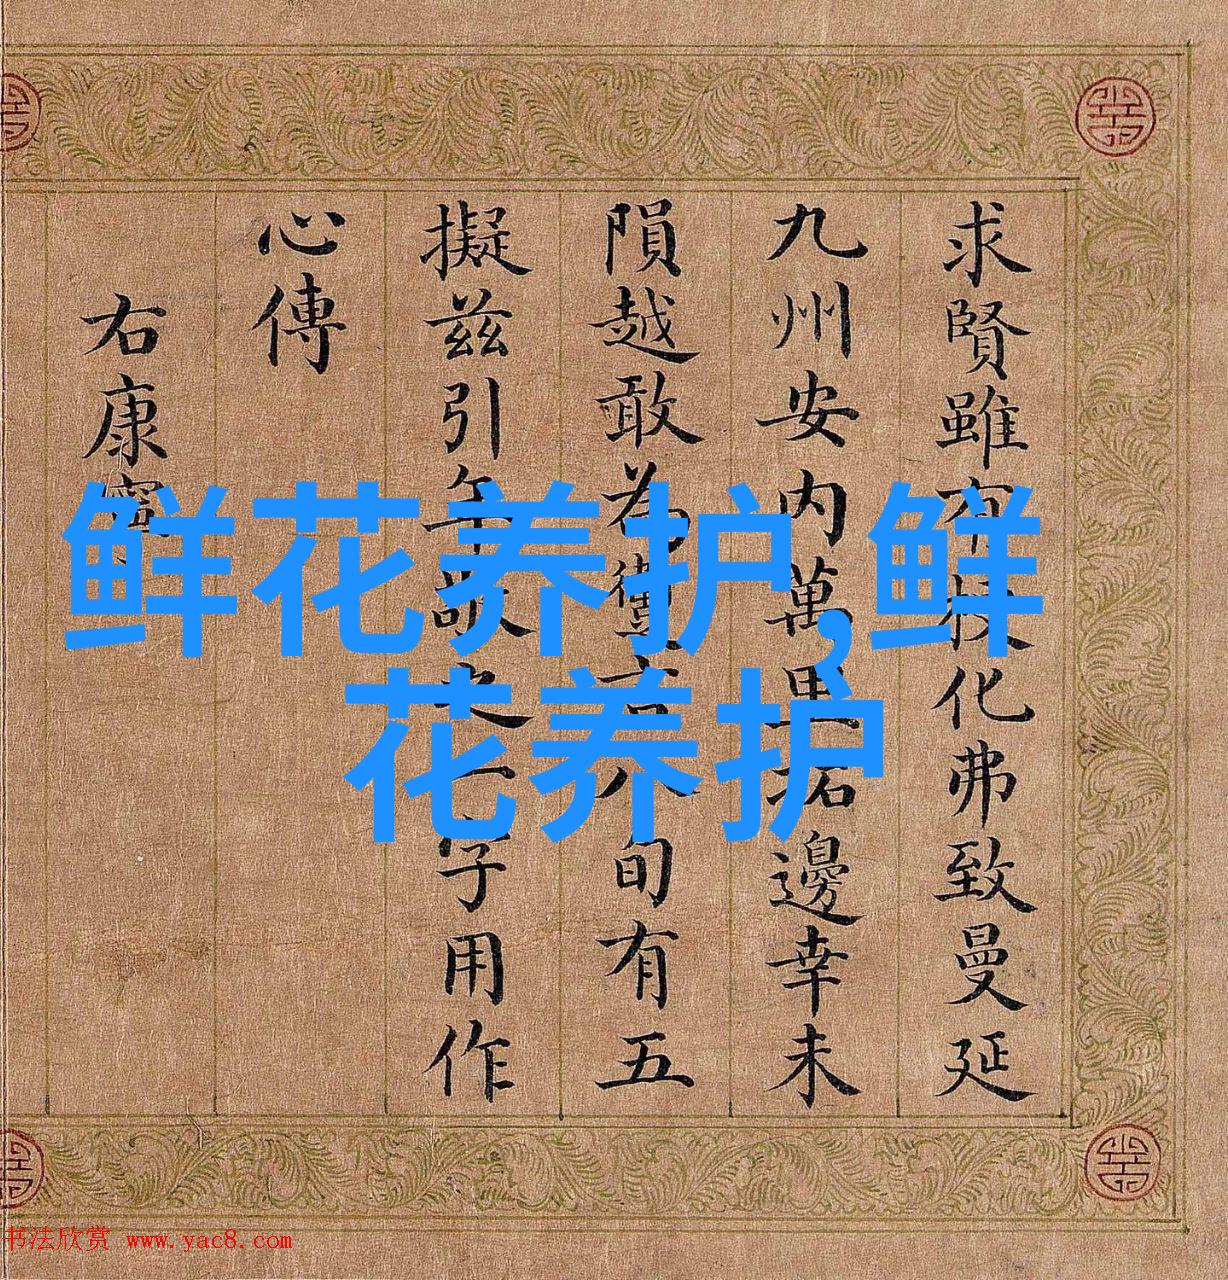 求賢雖化弗致曼延
九州安内萬里邊幸未
隕越敢為旬有五
擬兹引年敬之一字用作
心傳
右康寧
鲜花养护,鲜
花养护
书法欣赏 www.yac8.com